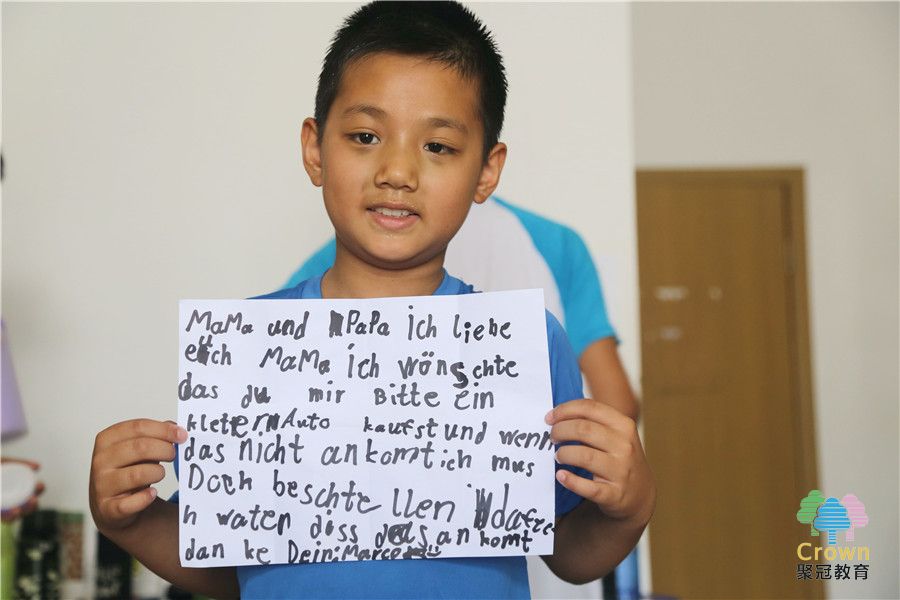 MaMa und PaPa ich liebe
euch MaMa ich wönschte
das du mir Bitte ein
kletternAuto kaufst und wenn
das nicht ankomt ich mus
Doch beschte llen
h waten döss das an komt
dan ke Dein:Marcel
Crown
聚冠教育